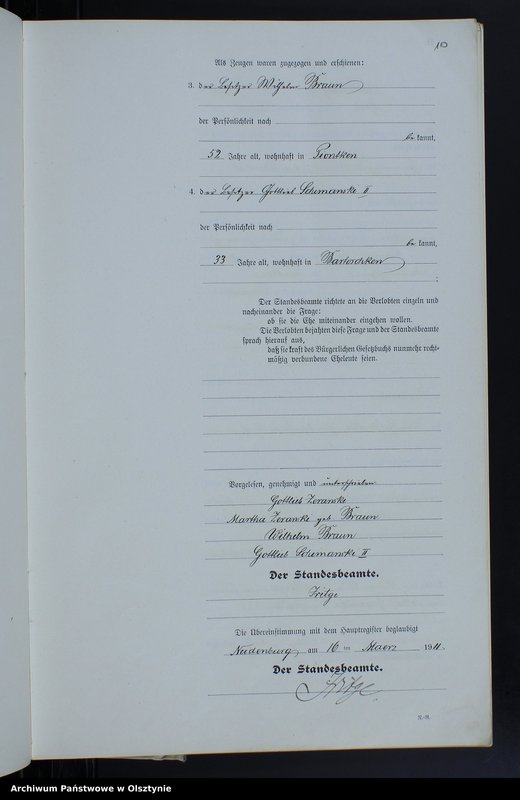 10
Als Zeugen waren zugezogen und erschienen:
3. der Besitzer Wilhelm Braun
der Persönlichkeit nach
be kannt,
52 Jahre alt, wohnhaft in Piontken
4. der Besitzer Gottlieb Schimanski II
der Persönlichkeit nach
be kannt,
33 Jahre alt, wohnhaft in Bartoschken
;
Der Standesbeamte richtete an die Verlobten einzeln und
nacheinander die Frage:
ob sie die Ehe miteinander eingehen wollen.
Die Verlobten bejahten diese Frage und der Standesbeamte
sprach hierauf aus,
daß sie kraft des Bürgerlichen Gesetzbuchs nunmehr recht-
mäßig verbundene Eheleute seien.
Vorgelesen, genehmigt und unterschrieben
Gottlieb
Martha geb Braun
Wilhelm Braun
Gottlieb Schimanski II
Der Standesbeamte.
Die Übereinstimmung mit dem Hauptregister beglaubigt
Neidenburg, am 16 ten Maerz 1911.
Der Standesbeamte.
Archiwum Państwowe w Olsztynie